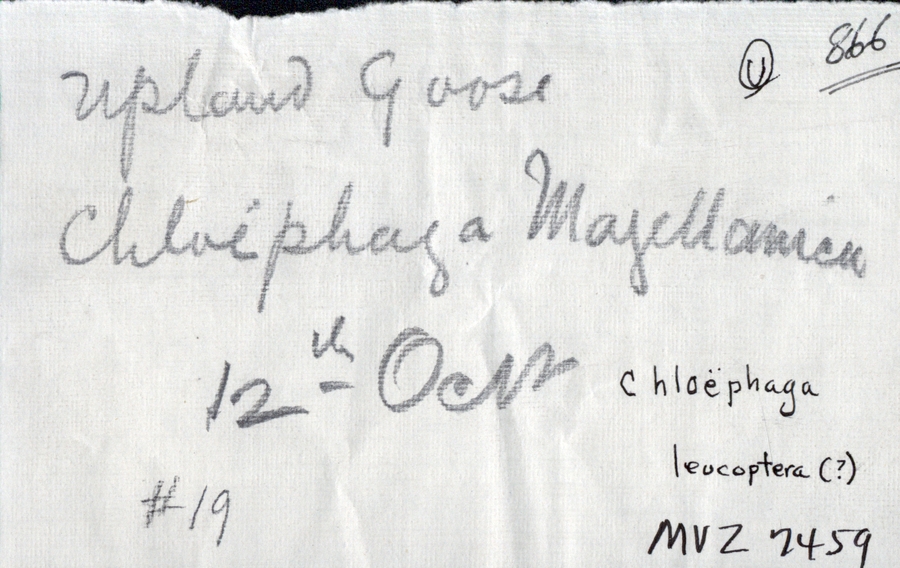 U 866
Upland Goose
Chloëphaga Magellanica
12th Oct
Chloëphaga
leucoptera (?)
#19
MVZ 7459